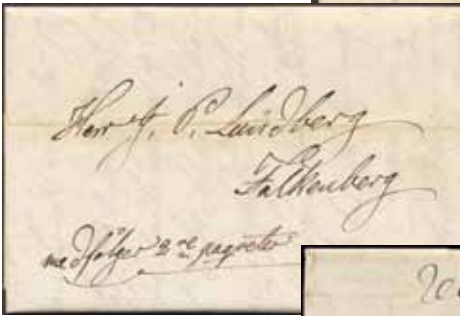 Herr J. P. Lundberg
Falkenberg
medfölger 2ne paqueter